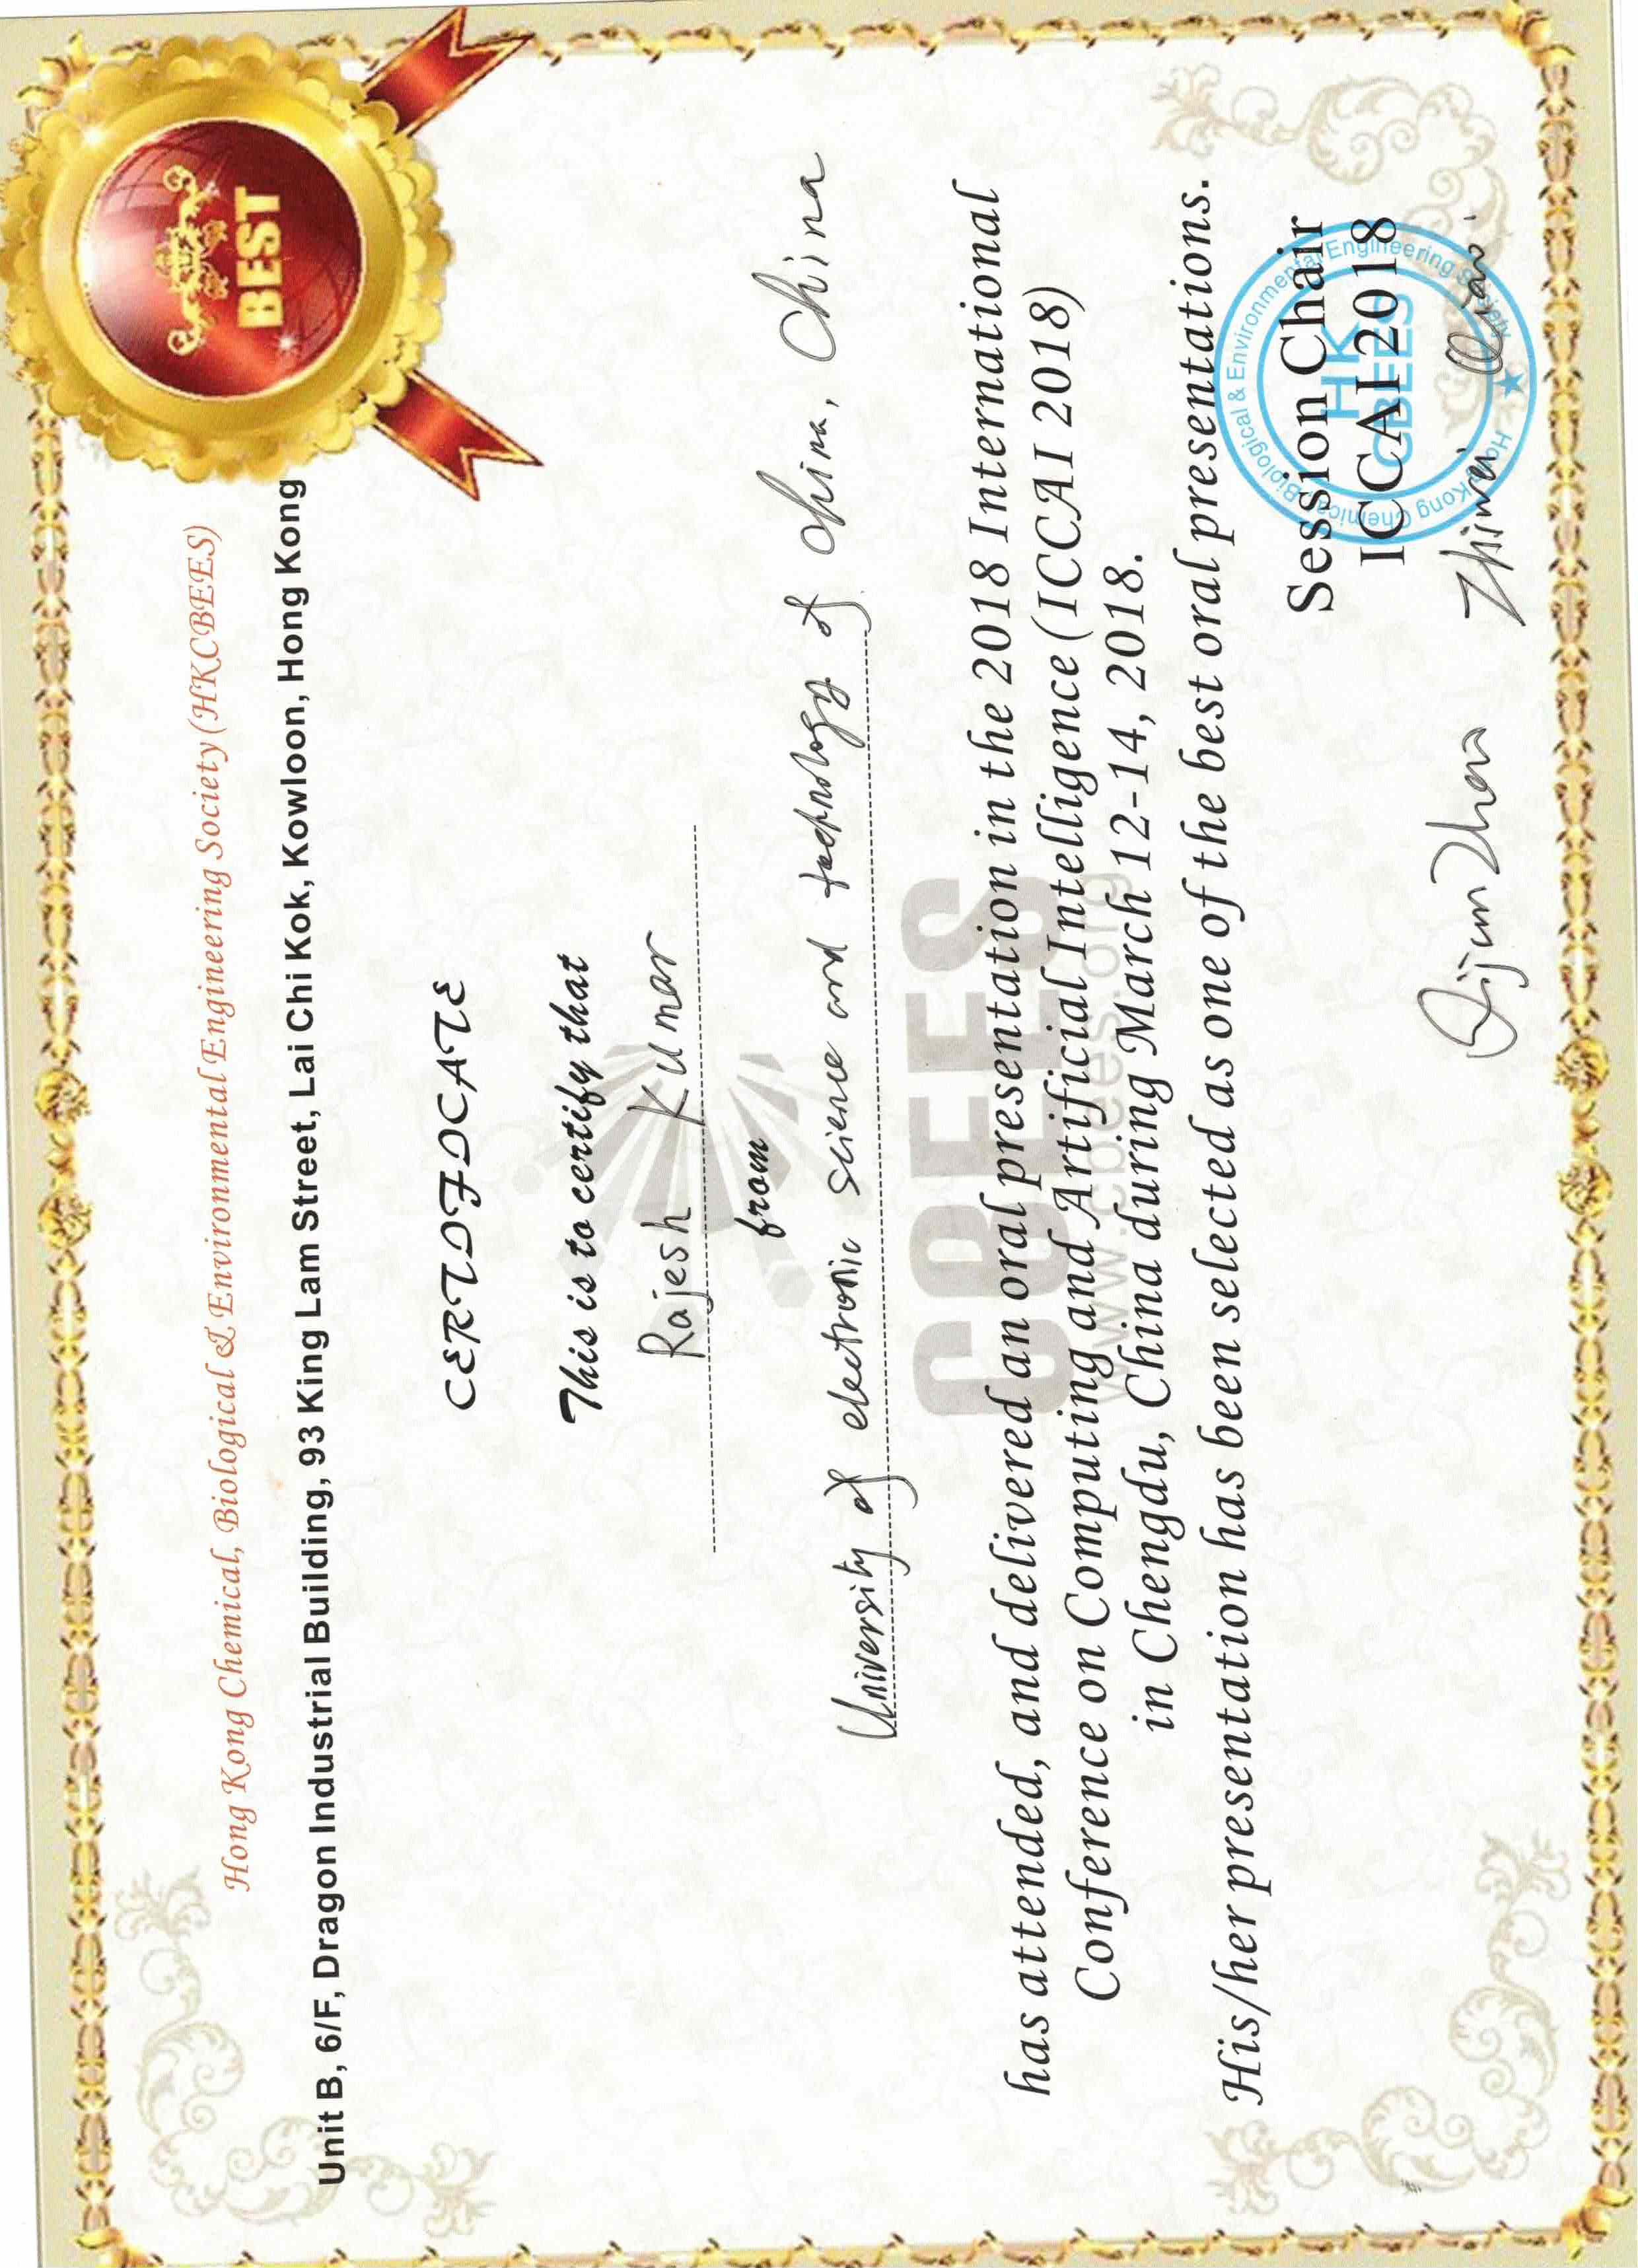 Hong Kong Chemical, Biological & Environmental Engineering Society (HKCBEES)
BEST
Unit B, 6/F, Dragon Industrial Building, 93 King Lam Street, Lai Chi Kok, Kowloon, Hong Kong
CERTIFICATE
This is to certify that
Rajesh Kumar
from
University of electronic science and technology of china, China
CBEES
www.cbees.org
has attended, and delivered an oral presentation in the 2018 International
Conference on Computing and Artificial Intelligence (ICCAI 2018)
in Chengdu, China during March 12-14, 2018.
His/her presentation has been selected as one of the best oral presentations.
Session Chair
ICCAI 2018
Hong Kong Chemical, Biological & Environmental Engineering Society
HK
CBEES
Qijun Zhao Zhiwei Qiao.